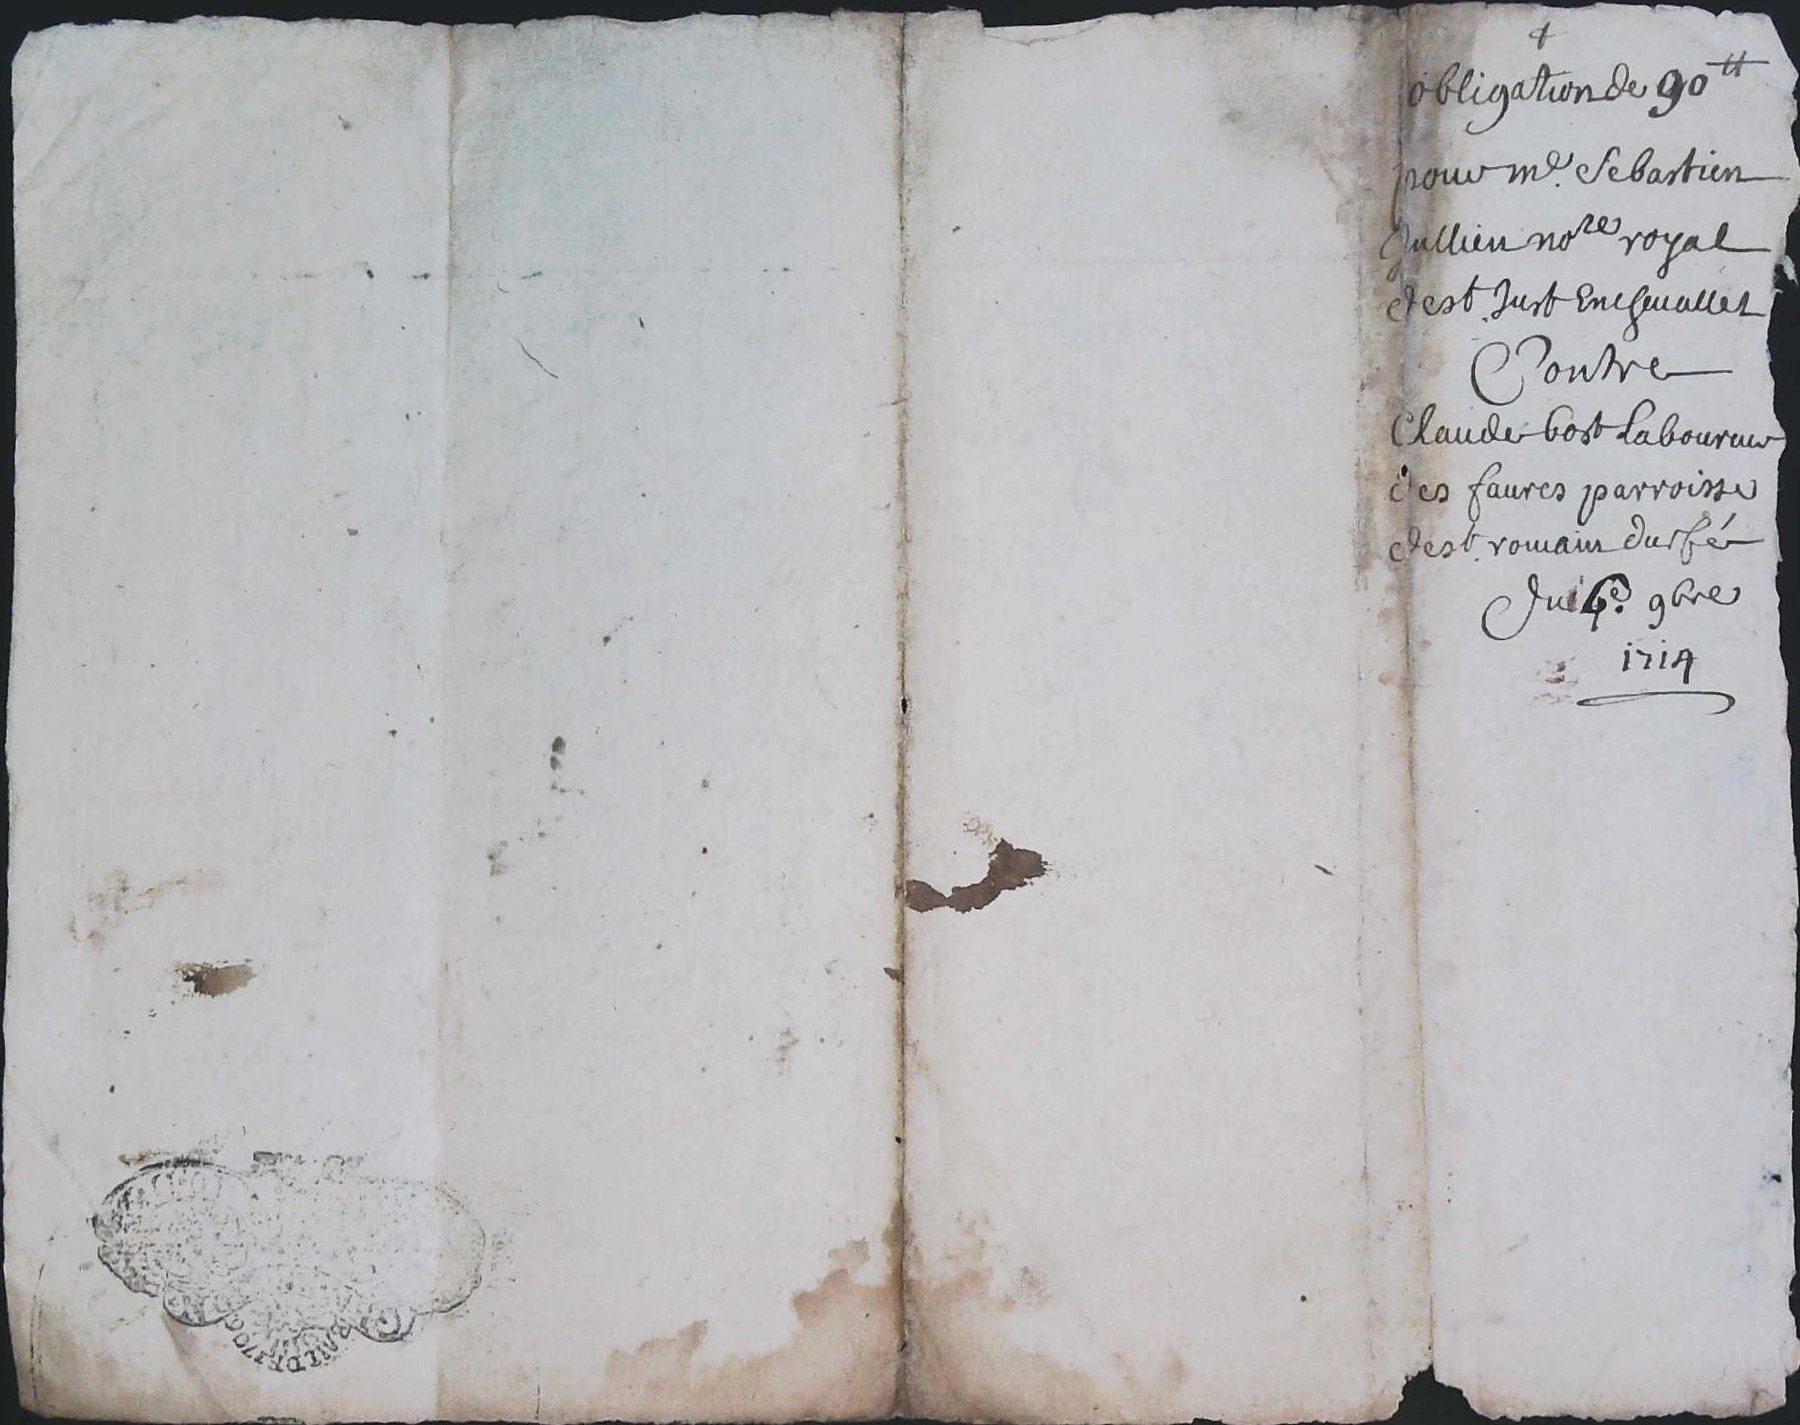 obligation de 90 ₶
pour me. Sebastien
Jullien nore royal
de st. Just Enchevallet
Contre
Claude bost Laboureur
des faures parroisse
de st. romain durfé
Du 9bre
1714
BAIL DE 1706